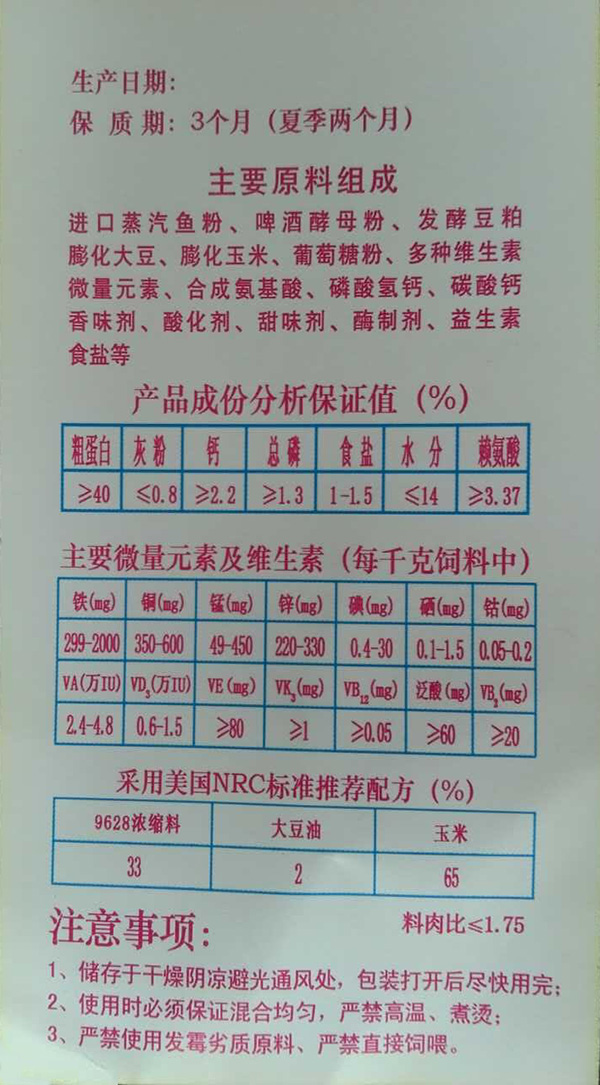 生产日期:
保 质 期: 3个月 (夏季两个月)
主要原料组成
进口蒸汽鱼粉、啤酒酵母粉、发酵豆粕
膨化大豆、膨化玉米、葡萄糖粉、多种维生素
微量元素、合成氨基酸、磷酸氢钙、碳酸钙
香味剂、酸化剂、甜味剂、酶制剂、益生素
食盐等
产品成份分析保证值 (%)
粗蛋白 灰粉 钙 总磷 食盐 水分 赖氨酸
≥40 ≤0.8 ≥2.2 ≥1.3 1-1.5 ≤14 ≥3.37
主要微量元素及维生素 (每千克饲料中)
铁(mg) 铜(mg) 锰(mg) 锌(mg) 碘(mg) 硒(mg) 钴(mg)
299-2000 350-600 49-450 220-330 0.4-30 0.1-1.5 0.05-0.2
VA(万IU) VD3(万IU) VE(mg) VK3(mg) VB12(mg) 泛酸(mg) VB2(mg)
2.4-4.8 0.6-1.5 ≥80 ≥1 ≥0.05 ≥60 ≥20
采用美国NRC标准推荐配方 (%)
9628浓缩料 大豆油 玉米
33 2 65
料肉比≤1.75
注意事项:
1、储存于干燥阴凉避光通风处，包装打开后尽快用完;
2、使用时必须保证混合均匀，严禁高温、煮烫;
3、严禁使用发霉劣质原料、严禁直接饲喂。